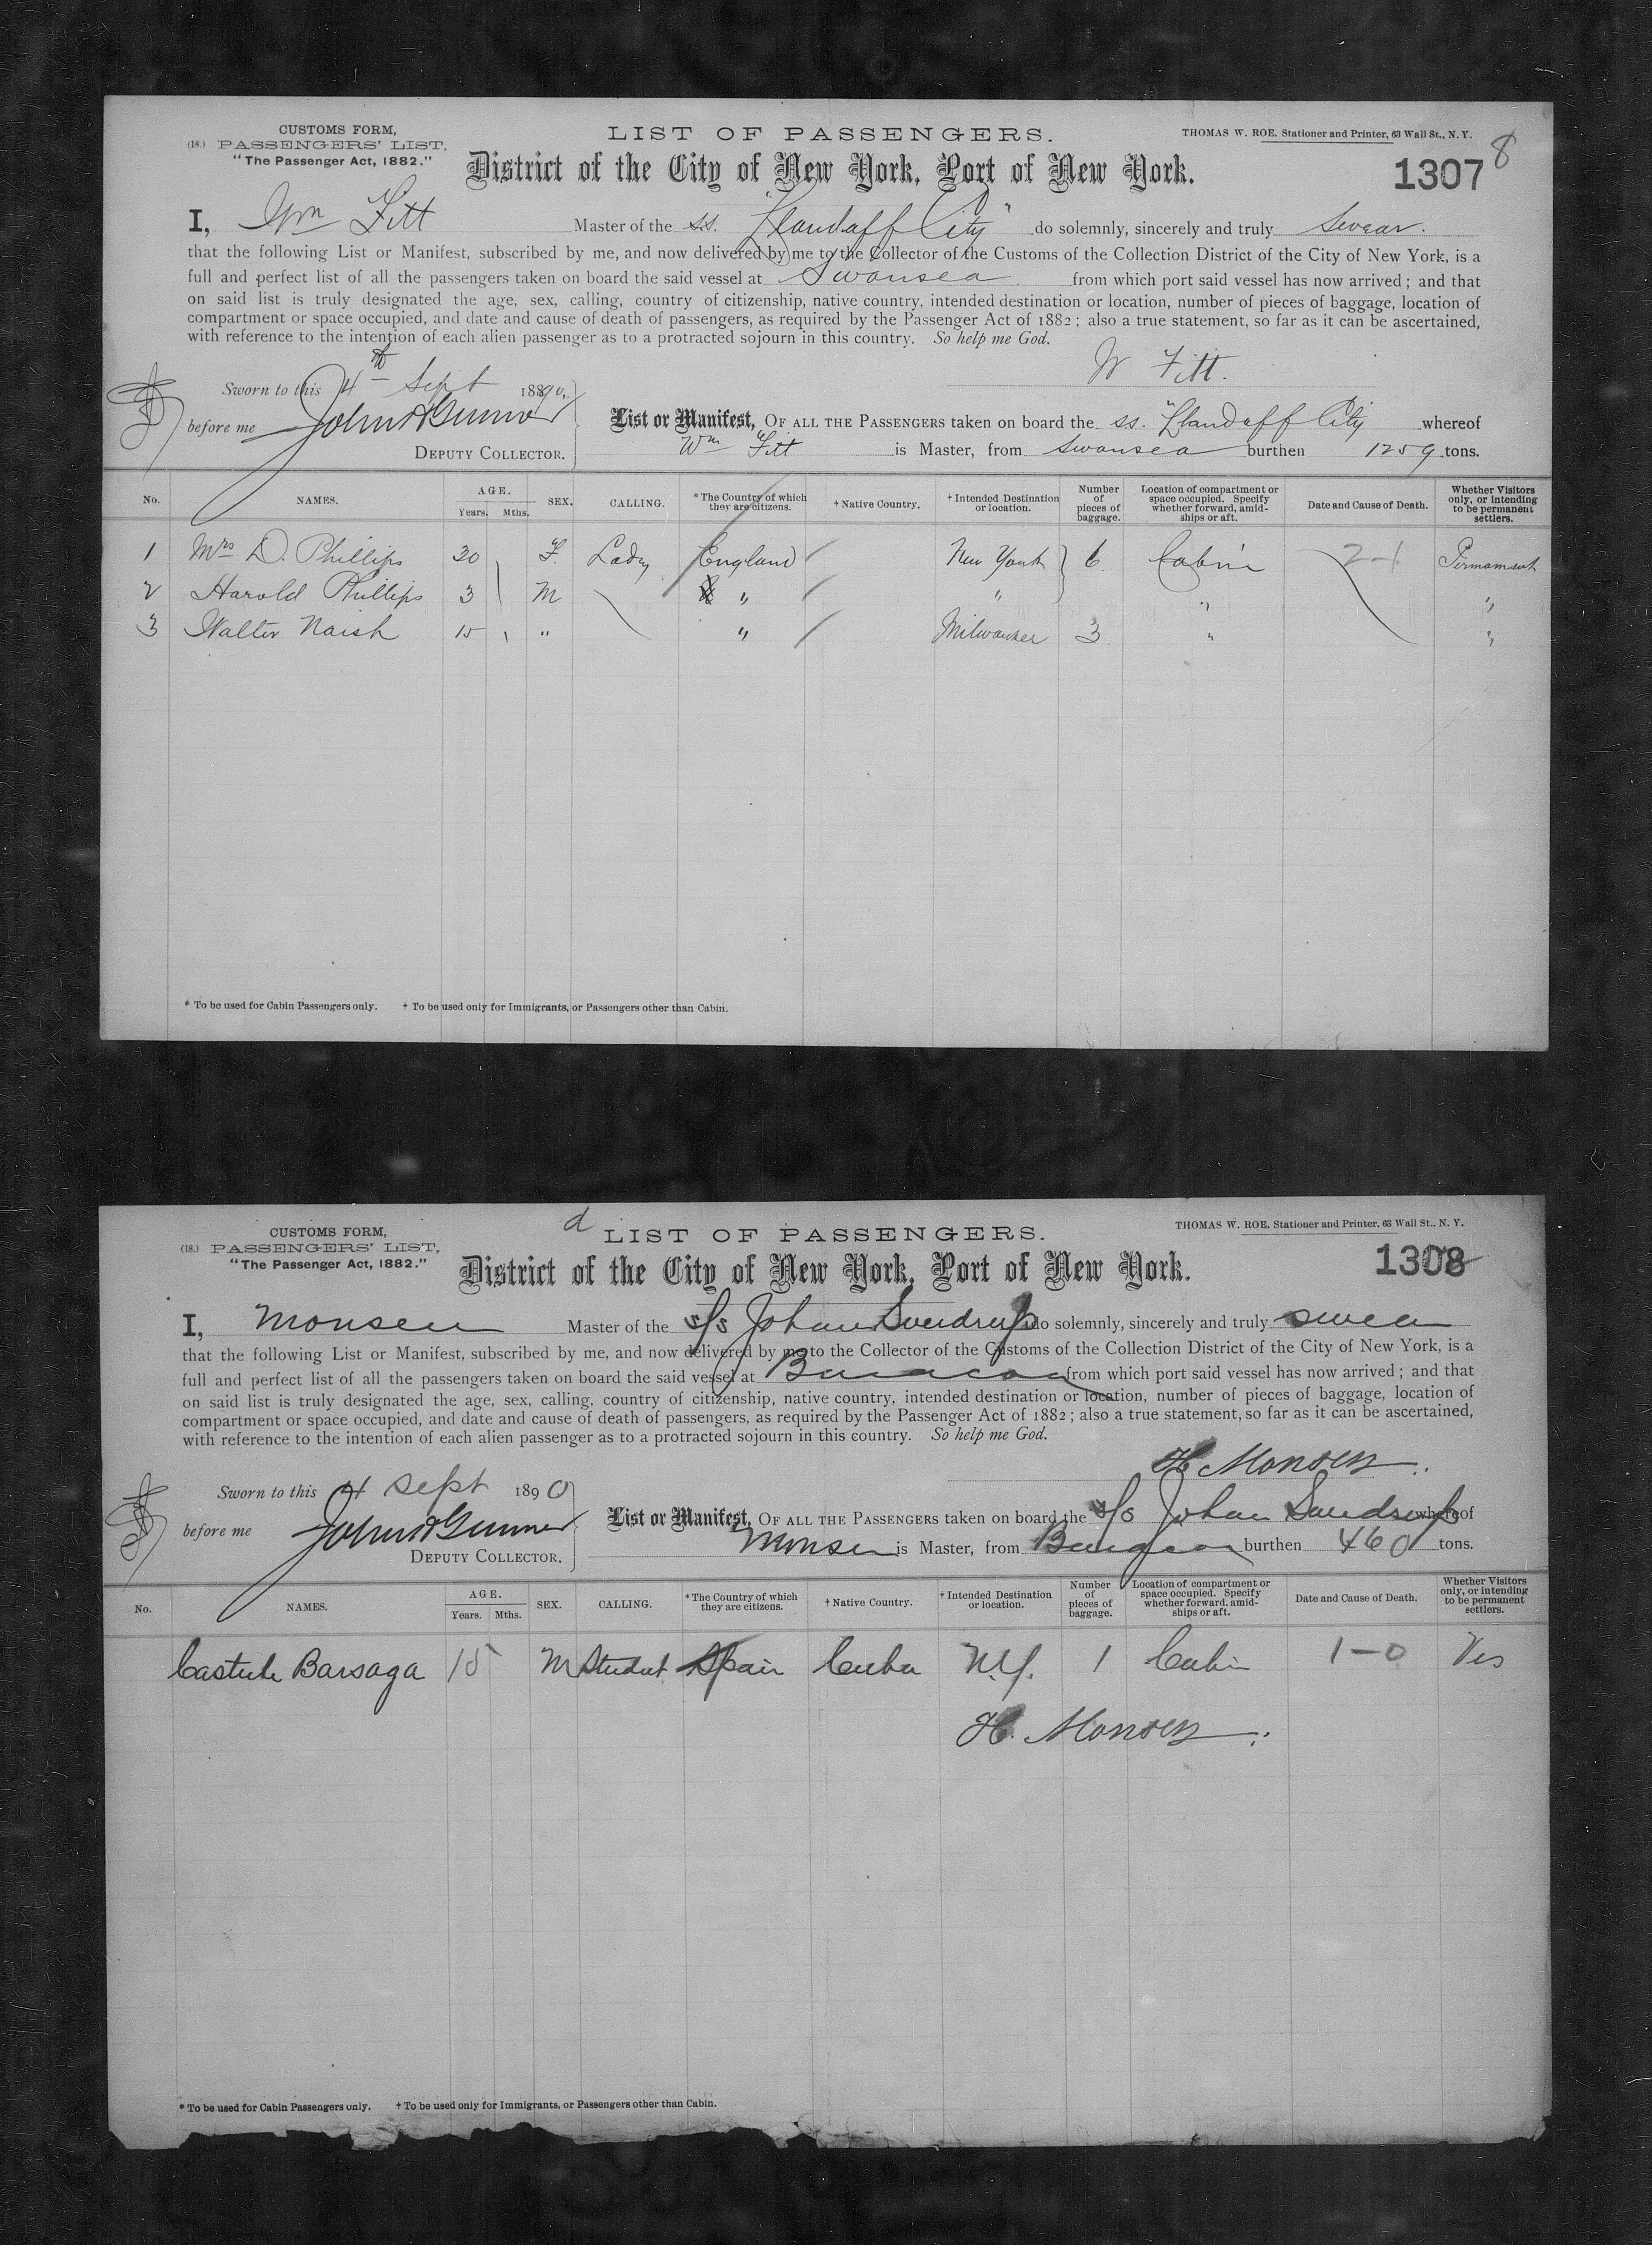 CUSTOMS FORM,
(18.) PASSENGERS' LIST,
"The Passenger Act, 1882."
LIST OF PASSENGERS.
THOMAS W. ROE. Stationer and Printer, 63 Wall St., N. Y.
District of the City of New York, Port of New York.
1307 8
I, Wm Fitt Master of the ss. "Llandaff City" do solemnly, sincerely and truly swear.
that the following List or Manifest, subscribed by me, and now delivered by me to the Collector of the Customs of the Collection District of the City of New York, is a
full and perfect list of all the passengers taken on board the said vessel at Swansea from which port said vessel has now arrived; and that
on said list is truly designated the age, sex, calling, country of citizenship, native country, intended destination or location, number of pieces of baggage, location of
compartment or space occupied, and date and cause of death of passengers, as required by the Passenger Act of 1882; also a true statement, so far as it can be ascertained,
with reference to the intention of each alien passenger as to a protracted sojourn in this country. So help me God.
W Fitt.
Sworn to this 4th Sept 1890,
before me John A Gunner
DEPUTY COLLECTOR.
List or Manifest, OF ALL THE PASSENGERS taken on board the ss. "Llandaff City whereof
Wm Fitt is Master, from Swansea burthen 1259 tons.
No. NAMES. AGE. Years. Mths. SEX. CALLING. * The Country of which they are citizens. † Native Country. † Intended Destination or location. Number of pieces of baggage. Location of compartment or space occupied. Specify whether forward, amidships or aft. Date and Cause of Death. Whether Visitors only, or intending to be permanent settlers.
1 Mrs D. Phillips 30 F. Lady England New York 6 Cabin 2-1 Pirmament
2 Harold Phillips 3 M " " " "
3 Walter Naish 15 " " Milwaukee 3 " "
* To be used for Cabin Passengers only. † To be used only for Immigrants, or Passengers other than Cabin.
d
CUSTOMS FORM,
(18.) PASSENGERS' LIST,
"The Passenger Act, 1882."
LIST OF PASSENGERS.
THOMAS W. ROE. Stationer and Printer. 63 Wall St., N. Y.
District of the City of New York, Port of New York.
1308
I, Monsen Master of the s/s Johan Sverdrup do solemnly, sincerely and truly swear
that the following List or Manifest, subscribed by me, and now delivered by me to the Collector of the Customs of the Collection District of the City of New York, is a
full and perfect list of all the passengers taken on board the said vessel at Baracoa from which port said vessel has now arrived; and that
on said list is truly designated the age, sex, calling, country of citizenship, native country, intended destination or location, number of pieces of baggage, location of
compartment or space occupied, and date and cause of death of passengers, as required by the Passenger Act of 1882; also a true statement, so far as it can be ascertained,
with reference to the intention of each alien passenger as to a protracted sojourn in this country. So help me God.
H. Monsen.
Sworn to this 4 sept 1890
before me John A Gunner
DEPUTY COLLECTOR.
List or Manifest, OF ALL THE PASSENGERS taken on board the s/s Johan Sverdrup whereof
Monsen is Master, from burthen 460 tons.
No. NAMES. AGE. Years. Mths. SEX. CALLING. * The Country of which they are citizens. † Native Country. † Intended Destination or location. Number of pieces of baggage. Location of compartment or space occupied. Specify whether forward, amidships or aft. Date and Cause of Death. Whether Visitors only, or intending to be permanent settlers.
Barsaga 15 M Student Spain Cuba N.Y. 1 Cabin 1-0 Yes
H. Monsen.
* To be used for Cabin Passengers only. † To be used only for Immigrants, or Passengers other than Cabin.